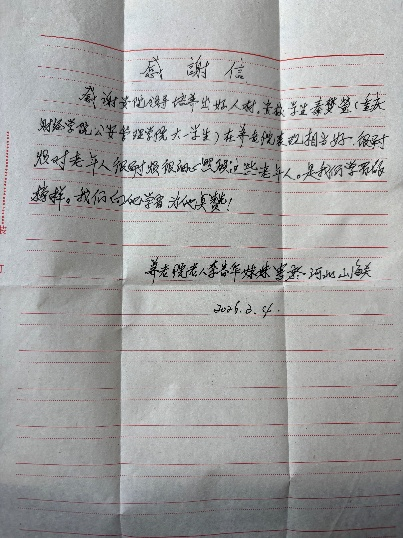 感謝信
感谢贵院领导培养出好人材,贵校学生秦梦莹(重庆
财经学院公共管理学院大一学生)在养老院表现相当好。很耐
烦对老年人很耐烦很细心照顾这些老年人。是我们学习的
榜样。我们向他学习 为他点赞!
养老院老人李昌华 妹妹 河北山海关
2026.2.24.